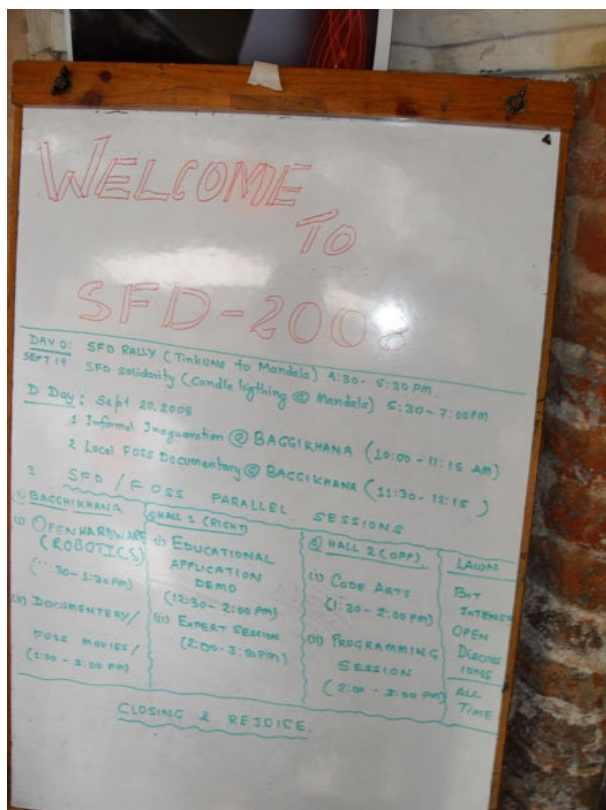 WELCOME
TO
SFD-2008
DAY 0: SFD RALLY (Tinkune to Mandala) 4:30- 5:30 PM.
SEPT 19 SFD Solidarity (Candle ligthing @ Mandala) 5:30-7:00PM
D Day: Sept 20, 2008
1 Informal Inaguaration @ BAGGIKHANA (10:00 - 11:15 AM)
2 Local FOSS Documentary @ BAGGIKHANA (11:30- 12:15)
3 SFD / FOSS PARALLEL SESSIONS
BAGGHIKHANA
(i) OPEN HARDWARE
(ROBOTICS)
30-1:30PM)
(ii) DOCUMENTERY/
FOSS MOVIES/
(1:30 - 3:00 PM)
HALL 1 (RIGHT)
(i) EDUCATIONAL
APPLICATION
DEMO
(12:30- 2:00PM)
(ii) EXPERT SESSION
(2:00-3:00PM)
HALL 2 (OPP)
(i) CODE ARTS
(1:30 - 2:00 PM)
(ii) PROGRAMMING
SESSION
(2:00 - 3:00 PM)
LAWN
BIT
INTENSIVE
OPEN
DISCUSS
IONS
ALL
TIME
CLOSING & REJOICE.